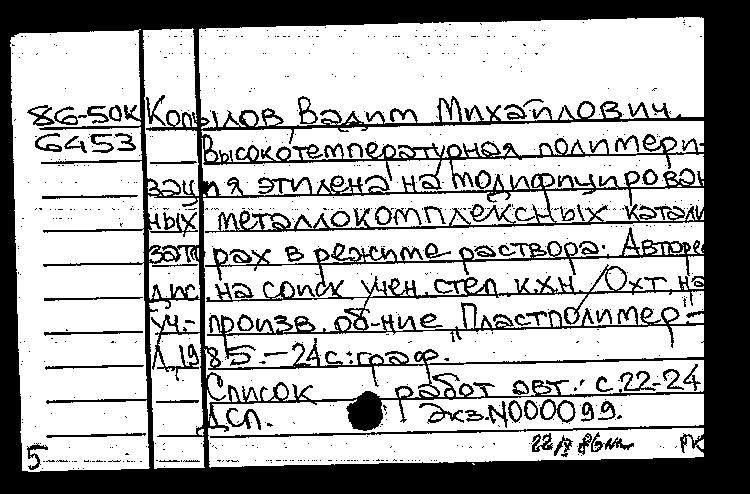 86-50К Копылов Вадим Михайлович.
6453 Высокотемпературная полимери-
зация этилена на модифицирован
ных металлокомплексных катали
заторах в режиме раствора: Авторе
дис. на соиск учен. степ. к.х.н. /Охт. на
уч.- произв. об-ние "Пластполимер".-
Л., 1985.-24с.:граф.
Список работ авт.: с.22-24
ДСП. Экз.N000099.
5